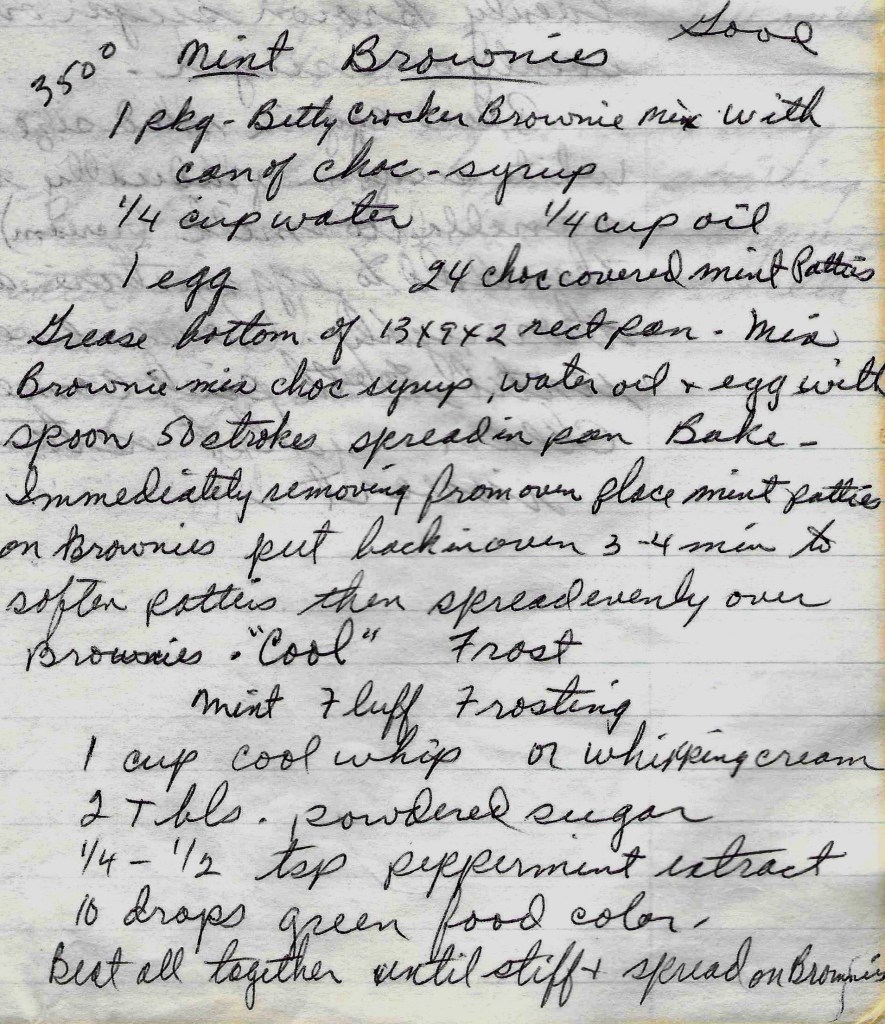 Good
350° Mint Brownies
1 pkg - Betty Crocker Brownie mix with
can of choc - syrup
1/4 cup water 1/4 cup oil
1 egg 24 choc covered mint Patties
Grease bottom of 13x9x2 rect pan - Mix
Brownie mix choc syrup, water oil + egg with
spoon 50 strokes spread in pan Bake -
Immediately removing from oven place mint patties
on Brownies put back in oven 3-4 min to
soften patties then spread evenly over
Brownies. "Cool" Frost
Mint Fluff Frosting
1 cup cool whip or whipping cream
2 Tbls. powdered sugar
1/4 - 1/2 tsp peppermint extract
10 drops green food color.
Beat all together until stiff + spread on Brownies